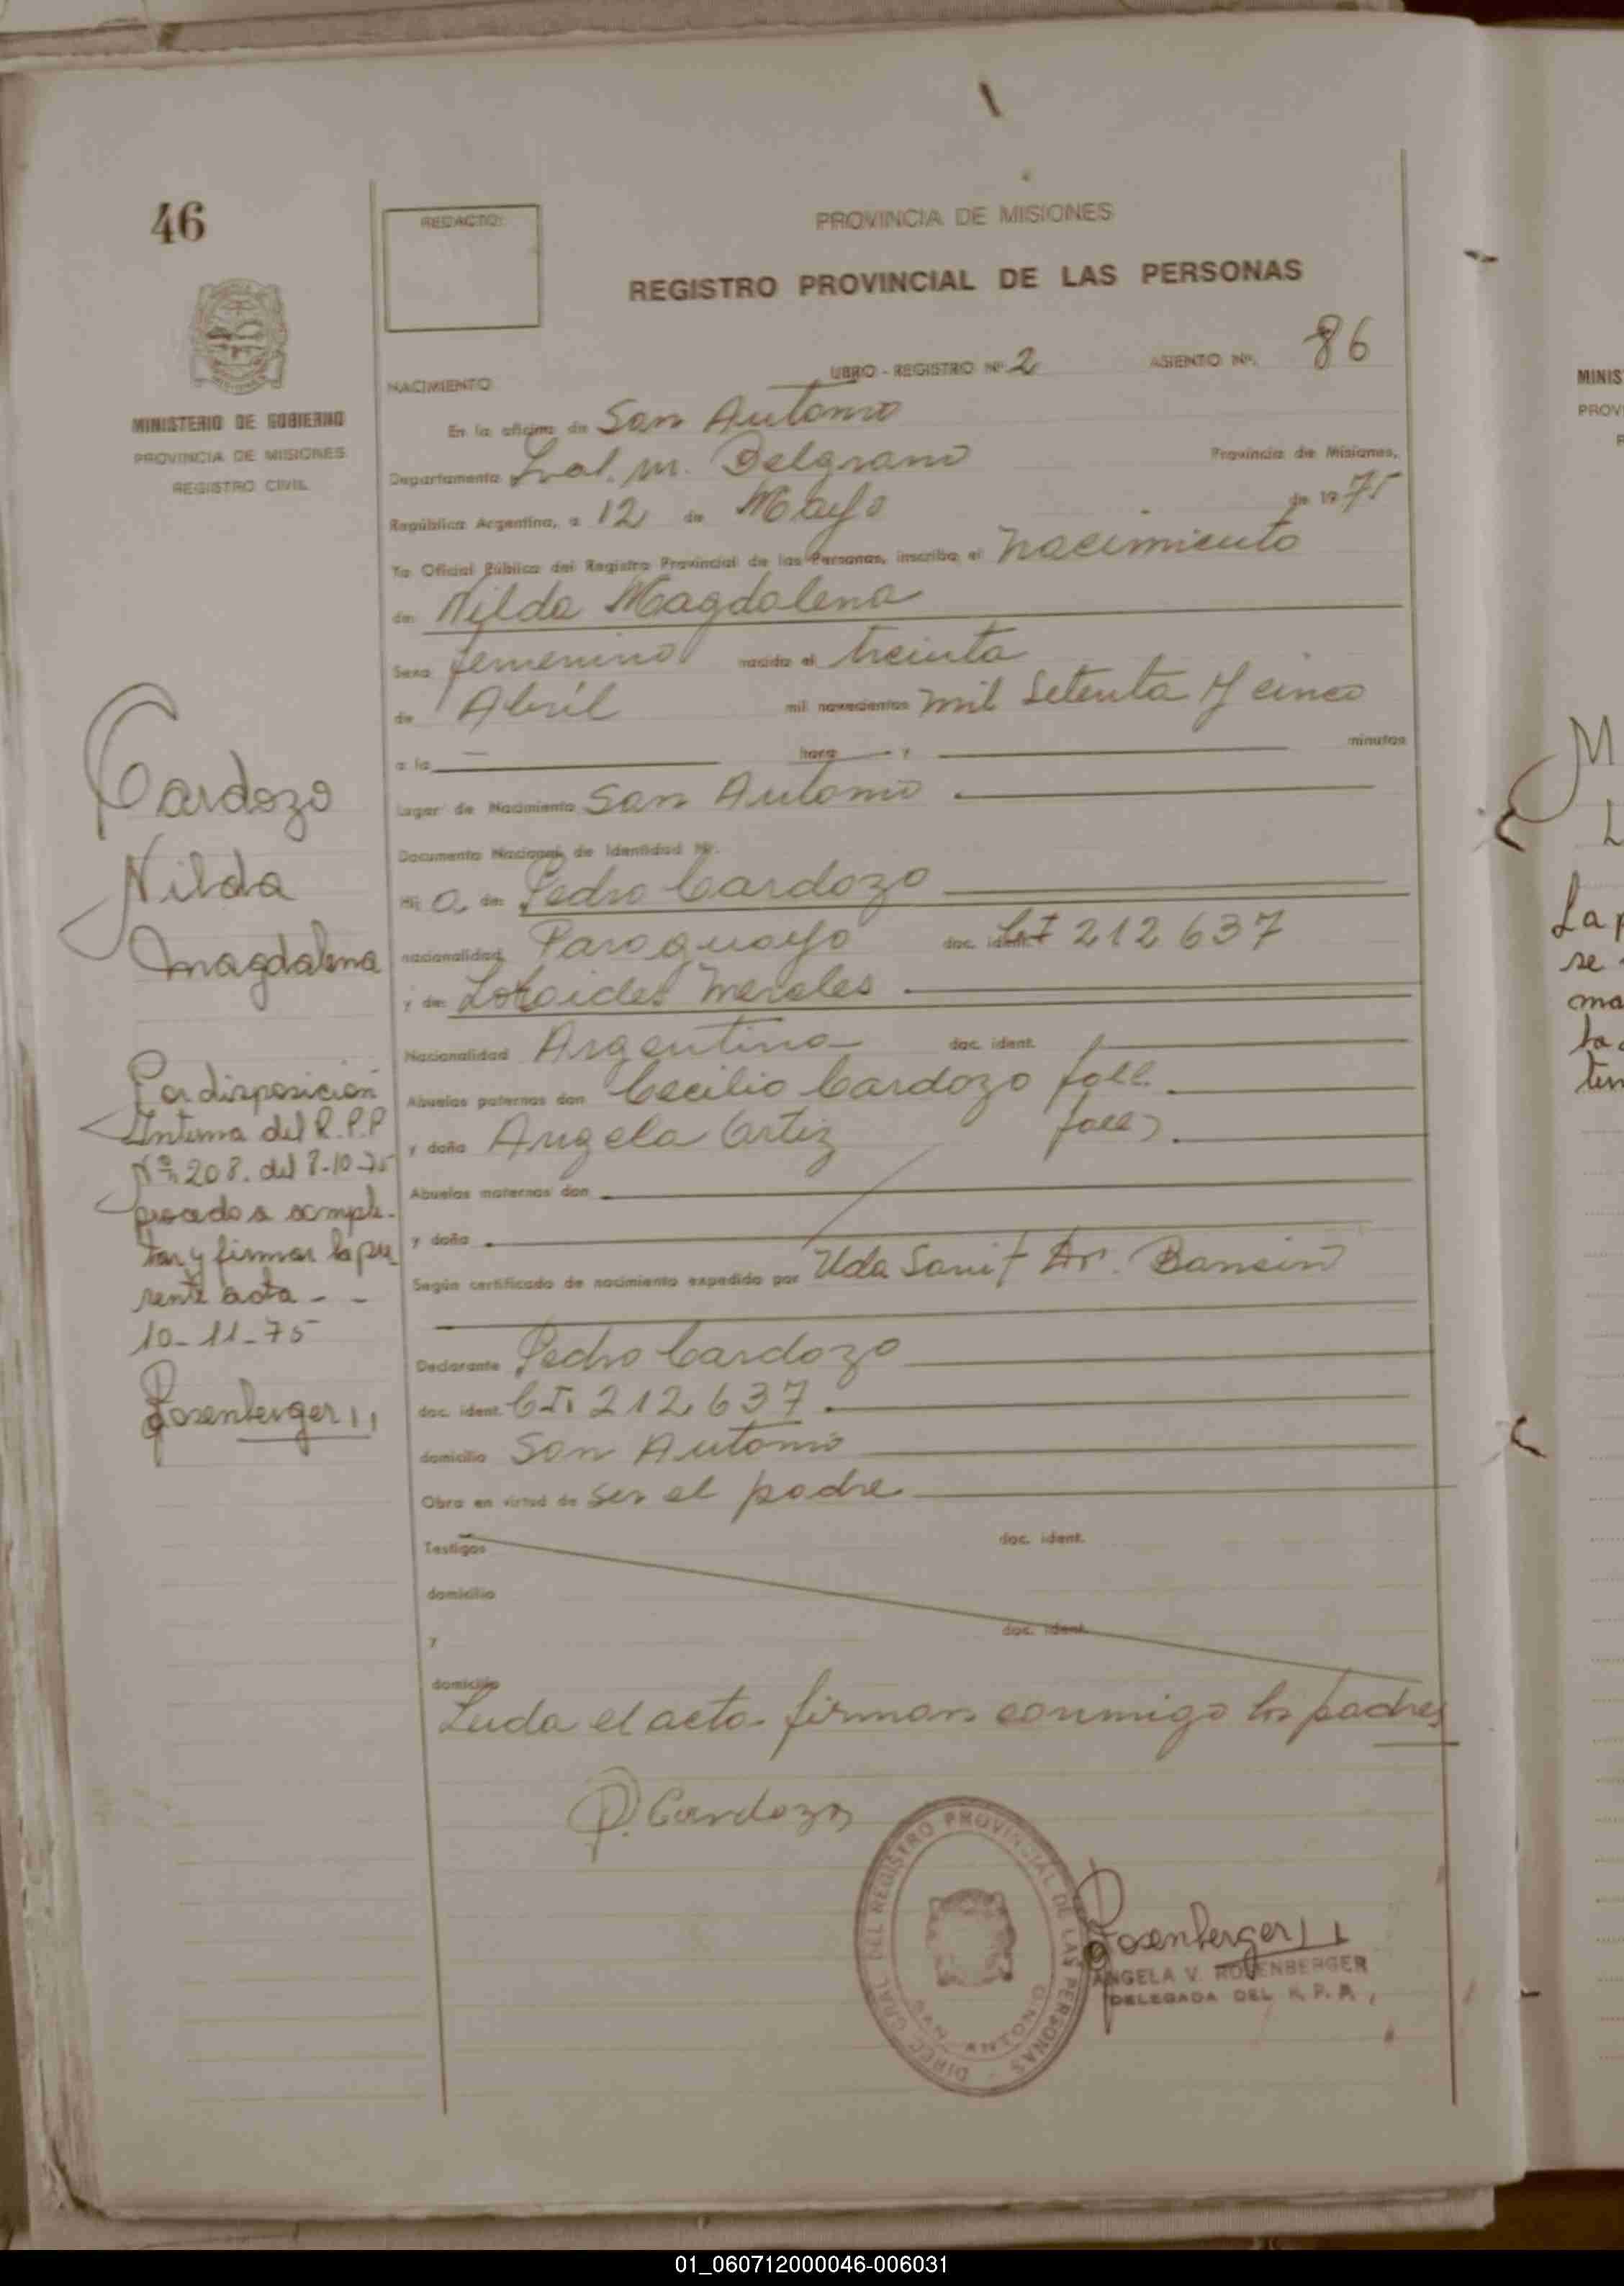 46
REDACTO:
PROVINCIA DE MISIONES
REGISTRO PROVINCIAL DE LAS PERSONAS
MINISTERIO DE GOBIERNO
PROVINCIA DE MISIONES
REGISTRO CIVIL
LIBRO - REGISTRO Nº 2 ASIENTO Nº. 86
NACIMIENTO
En la oficina de San Antonio
Departamento Gral. M. Belgrano Provincia de Misiones,
República Argentina, a 12 de Mayo de 1975
Yo Oficial Público del Registro Provincial de las Personas, inscribo el nacimiento
de Nilda Magdalena
Sexo femenino nacido el treinta
de Abril mil novecientos mil setenta y cinco
a la hora y minutos
Lugar de Nacimiento San Antonio
Documento Nacional de Identidad Nº.
Hij a de Pedro Cardozo
nacionalidad Paraguayo doc. ident. C I 212637
y de Mereles
Nacionalidad Argentina doc. ident.
Abuelos paternos don Cecilio Cardozo fall.
y doña Angela Ortiz fall)
Abuelos maternos don
y doña
Según certificado de nacimiento expedido por Uda Sanit Dr.
Declarante Pedro Cardozo
doc. ident. C.I. 212.637
domicilio San Antonio
Obra en virtud de ser el padre
Testigos doc. ident.
domicilio
y doc. ident.
domicilio
Leida el acta firman conmigo los padres
P. Cardozo
Cardozo
Nilda
Magdalena
Por disposición
Interna del R.P.P
Nº 208. del 8-10-75
procedo a comple-
tar y firmar la pre
sente acta - -
10-11-75
Rosenberger
DIREC. GRAL. DEL REGISTRO PROVINCIAL DE LAS PERSONAS
SAN ANTONIO
Rosenberger
ANGELA V. ROSENBERGER
DELEGADA DEL R. P. P.
MINIS
PROV
M
L
La p
se
ma
ta
ten
01_060712000046-006031